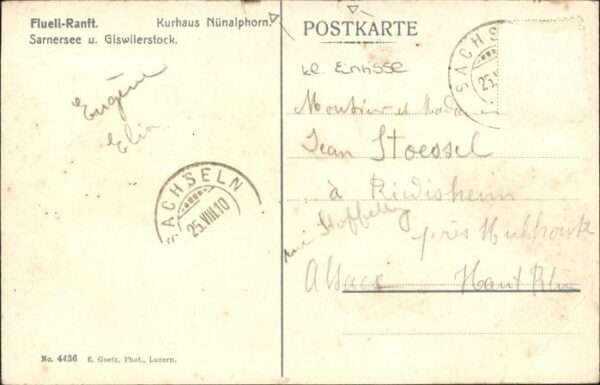 Flueli-Ranft. Kurhaus Nünalphorn.
Sarnersee u. Giswilerstock.
Eugène
SACHSELN
25.VIII.10
No. 4436 E. Goetz, Phot., Luzern.
POSTKARTE
SACHS
25.VI
Monsieur et
Jean Stoessel
à Riedisheim
près Mulhouse
Alsace Haut Rhin